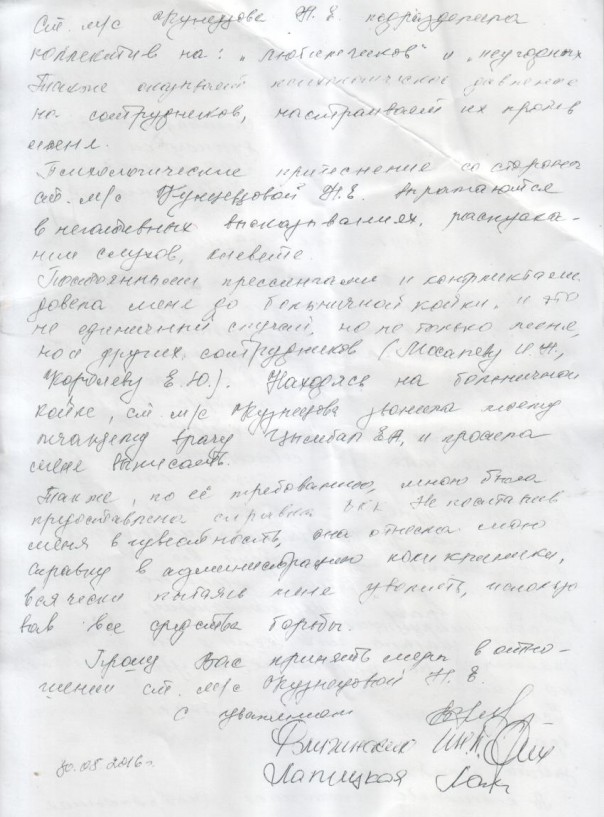 ст. м/с Кузнецова Н. Е. подразделила
коллектив на: "любимчиков" и "неугодных
Также оказывает психологическое давление
на сотрудников, настраивает их против
меня.
Психологические притеснение со стороны
ст. м/с Кузнецовой Н.Е. выражаются
в негативных высказываниях, распуска-
нии слухов, клевете.
Постоянными прессингами и конфликтами
довела меня до больничной койки, и это
не единичный случай, но не только меня,
но и других сотрудников (Мосалеву И.Н.,
Королеву Е.Ю.). Находясь на больничной
койке, ст. м/с Кузнецова звонила моему
лечащему врачу Цымбал ЕА, и просила
меня выписать.
Также, по её требованию, мною была
предоставлена справка Не поставив
меня в известность, она отнесла мою
справку в администрацию поликлиники,
всячески пытаясь меня уволить, использо
вав все средства борьбы.
Прошу Вас принять меры в отно-
шении ст. м/с Кузнецовой Н. Е.
С уважением
Лапицкая
30.05 2016г.